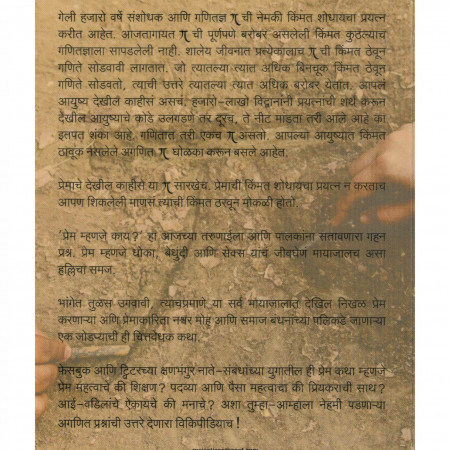 गेली हजारो वर्षे संशोधक आणि गणितज्ञ π ची नेमकी किंमत शोधायचा प्रयत्न
करीत आहेत. आजतागायत π ची पूर्णपणे बरोबर असलेली किंमत कुठल्याच
गणितज्ञाला सापडलेली नाही. शालेय जीवनात प्रत्येकालाच π ची किंमत ठेवून
गणिते सोडवावी लागतात. जो त्यातल्या त्यात अधिक बिनचूक किंमत ठेवून
गणिते सोडवतो, त्याची उत्तरे त्यातल्या त्यात अधिक बरोबर येतात. आपले
आयुष्य देखील काहीसं असचं. हजारो-लाखो विद्वानांनी प्रयत्नांची शर्थ करून
देखील आयुष्याचे कोडे उलगडणे तर दूरच, ते नीट मांडता तरी आले आहे का
इतपत शंका आहे. गणितात तरी एकच π असतो. आपल्या आयुष्यात किंमत
ठावूक नसलेले अगणित π घोळका करून बसले आहेत.
प्रेमाचे देखील काहीसे या π सारखेच. प्रेमाची किंमत शोधायचा प्रयत्न न करताच
आपण शिकलेली माणसं त्याची किंमत ठरवून मोकळी होतो.
'प्रेम म्हणजे काय ?' हा आजच्या तरुणाईला आणि पालकांना सतावणारा गहन
प्रश्न. प्रेम म्हणजे धोका, बेधुंदी आणि सेक्स यांचं जीवघेणं मायाजालच असा
हल्लिचा समज.
भांगेत तुळस उगवावी, त्याचप्रमाणे या सर्व मायाजालात देखिल निखळ प्रेम
करणाऱ्या आणि प्रेमाकारिता नश्वर मोह आणि समाज बंधनाच्या पलिकडे जाणाऱ्या
एक जोडप्याची ही चित्तवेधक कथा.
फेसबुक आणि ट्विटरच्या क्षणभंगुर नाते-संबंधांच्या युगातील ही प्रेम कथा म्हणजे
प्रेम महत्वाचे की शिक्षण ? पदव्या आणि पैसा महत्वाचा की प्रियकराची साथ ?
आई-वडिलांचे ऐकायचे की मनाचे ? अशा तुम्हा-आम्हाला नेहमी पडणाऱ्या
अगणित प्रश्नांची उत्तरे देणारा विकिपीडियाच !